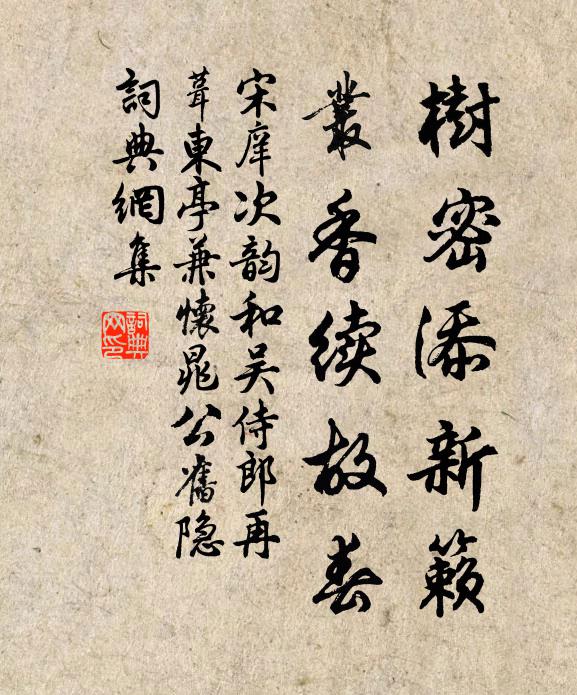 樹密添新籟
叢香续故春
宋庠次韵和吴侍郎再
葺東亭兼懷晁公舊隐
詞典網集
詞典
网印